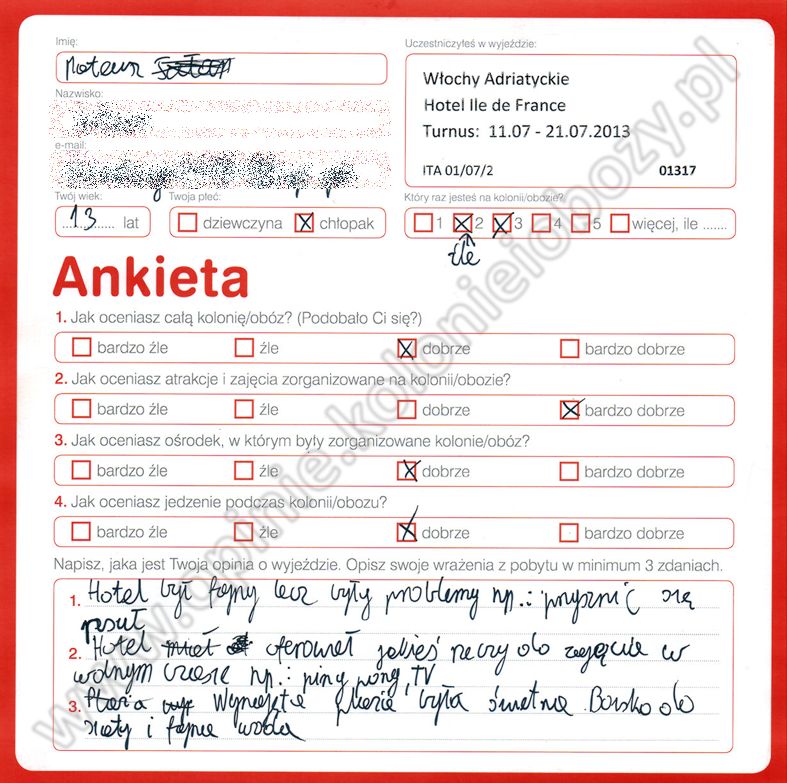 Imię:
Mateusz
Uczestniczyłeś w wyjeździe:
Włochy Adriatyckie
Hotel Ile de France
Turnus: 11.07 - 21.07.2013
ITA 01/07/2 01317
Nazwisko:
e-mail:
Twój wiek: Twoja płeć: Który raz jesteś na kolonii/obozie?
13 lat dziewczyna chłopak 1 2 3 4 5 więcej, ile .......
źle
Ankieta
1. Jak oceniasz całą kolonię/obóz? (Podobało Ci się?)
bardzo źle źle dobrze bardzo dobrze
2. Jak oceniasz atrakcje i zajęcia zorganizowane na kolonii/obozie?
bardzo źle źle dobrze bardzo dobrze
3. Jak oceniasz ośrodek, w którym były zorganizowane kolonie/obóz?
bardzo źle źle dobrze bardzo dobrze
4. Jak oceniasz jedzenie podczas kolonii/obozu?
bardzo źle źle dobrze bardzo dobrze
Napisz, jaka jest Twoja opinia o wyjeździe. Opisz swoje wrażenia z pobytu w minimum 3 zdaniach.
1. Hotel był fajny lecz były problemy np.: prysznic się
psuł
2. Hotel miał oferował jakieś rzeczy do zajęcia w
wolnym czasie np.: ping pong, TV
3. Plaża była świetna. Boisko do
siaty i fajna woda
www.opinie.kolonieiobozy.pl